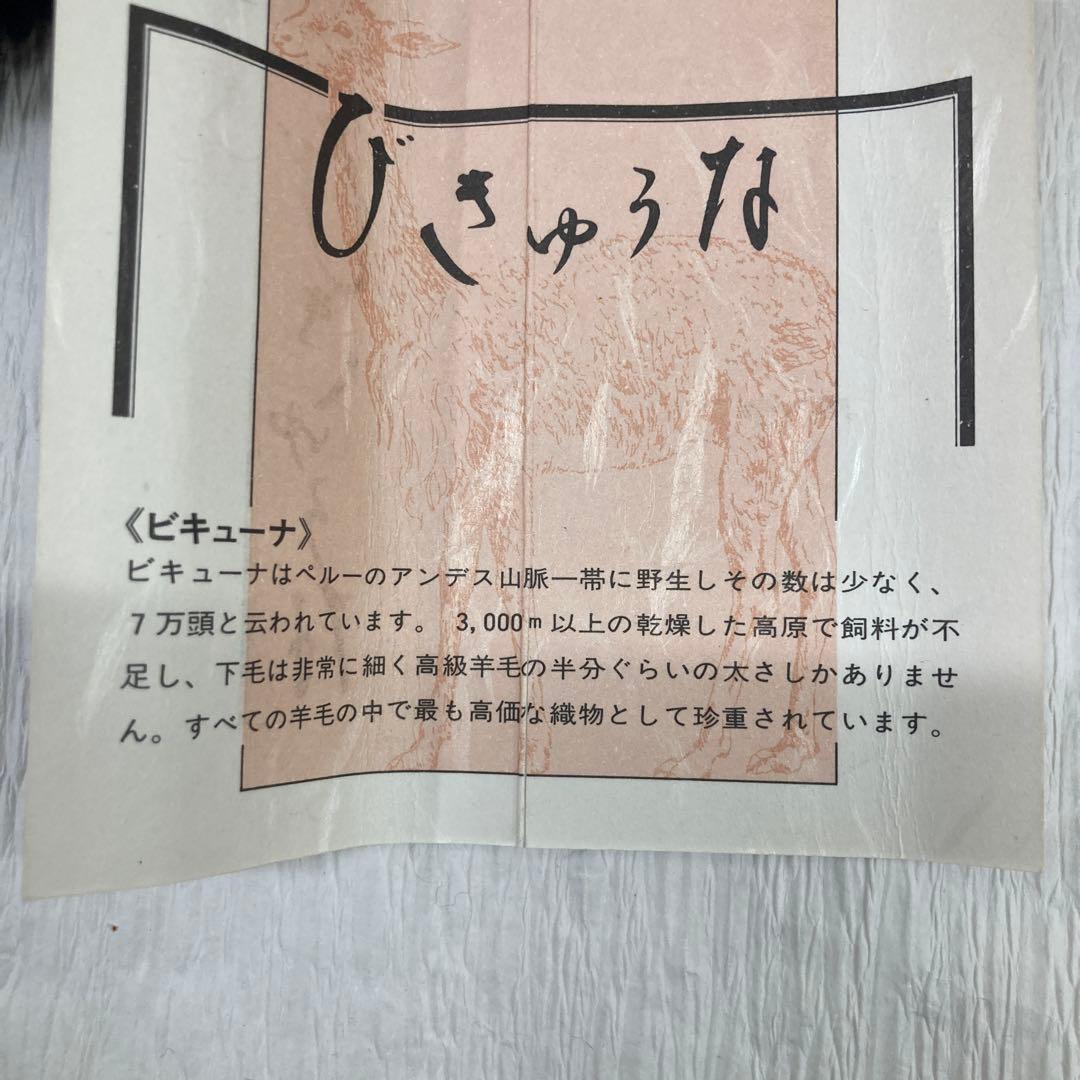 びきゅうな
《ビキューナ》
ビキューナはペルーのアンデス山脈一帯に野生しその数は少なく、
7万頭と云われています。 3,000m以上の乾燥した高原で飼料が不
足し、下毛は非常に細く高級羊毛の半分ぐらいの太さしかありませ
ん。すべての羊毛の中で最も高価な織物として珍重されています。